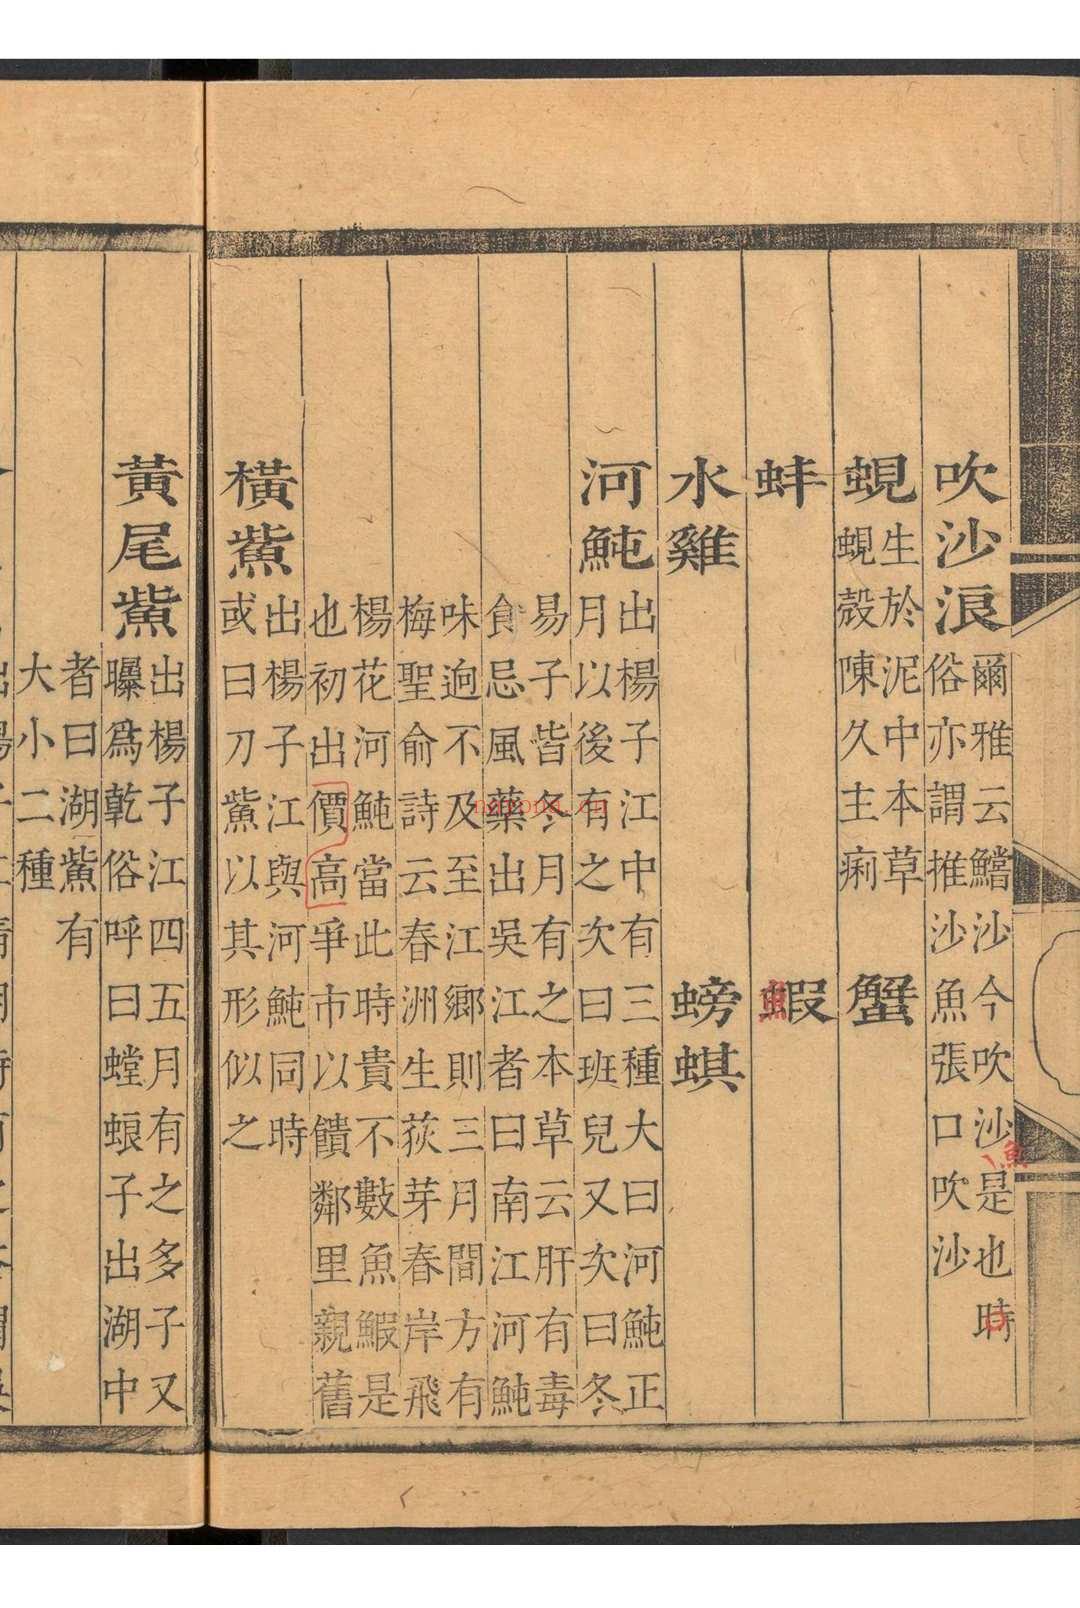 吹沙浪
爾雅云鱨沙今吹沙是也時
俗亦謂推沙魚張口吹沙
蜆
生於泥中本草
蜆殼陳久主痢
蟹
蚌
蝦
水雞
螃蜞
河魨
出楊子江中有三種大曰河魨正
月以後有之次曰班兒又次曰冬
易子皆冬月有之本草云肝有毒
食忌風藥出吳江者曰南江河魨
味逈不及至江鄉則三月間方有
梅聖俞詩云春洲生荻芽春岸飛
楊花河魨當此時貴不數魚鰕是
也初出價高爭市以饋鄰里親舊
橫鮆
出楊子江與河魨同時
或曰刀鮆以其形似之
黃尾鮆
出楊子江四五月有之多子又
曝爲乾俗呼曰螳蜋子出湖中
者曰湖鮆有
大小二種
魚
魚